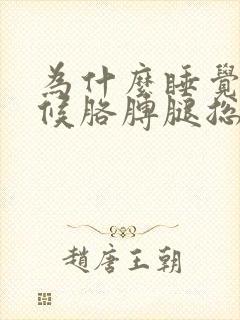 為什麼睡覺
候胳膊腿總
趙唐王朝